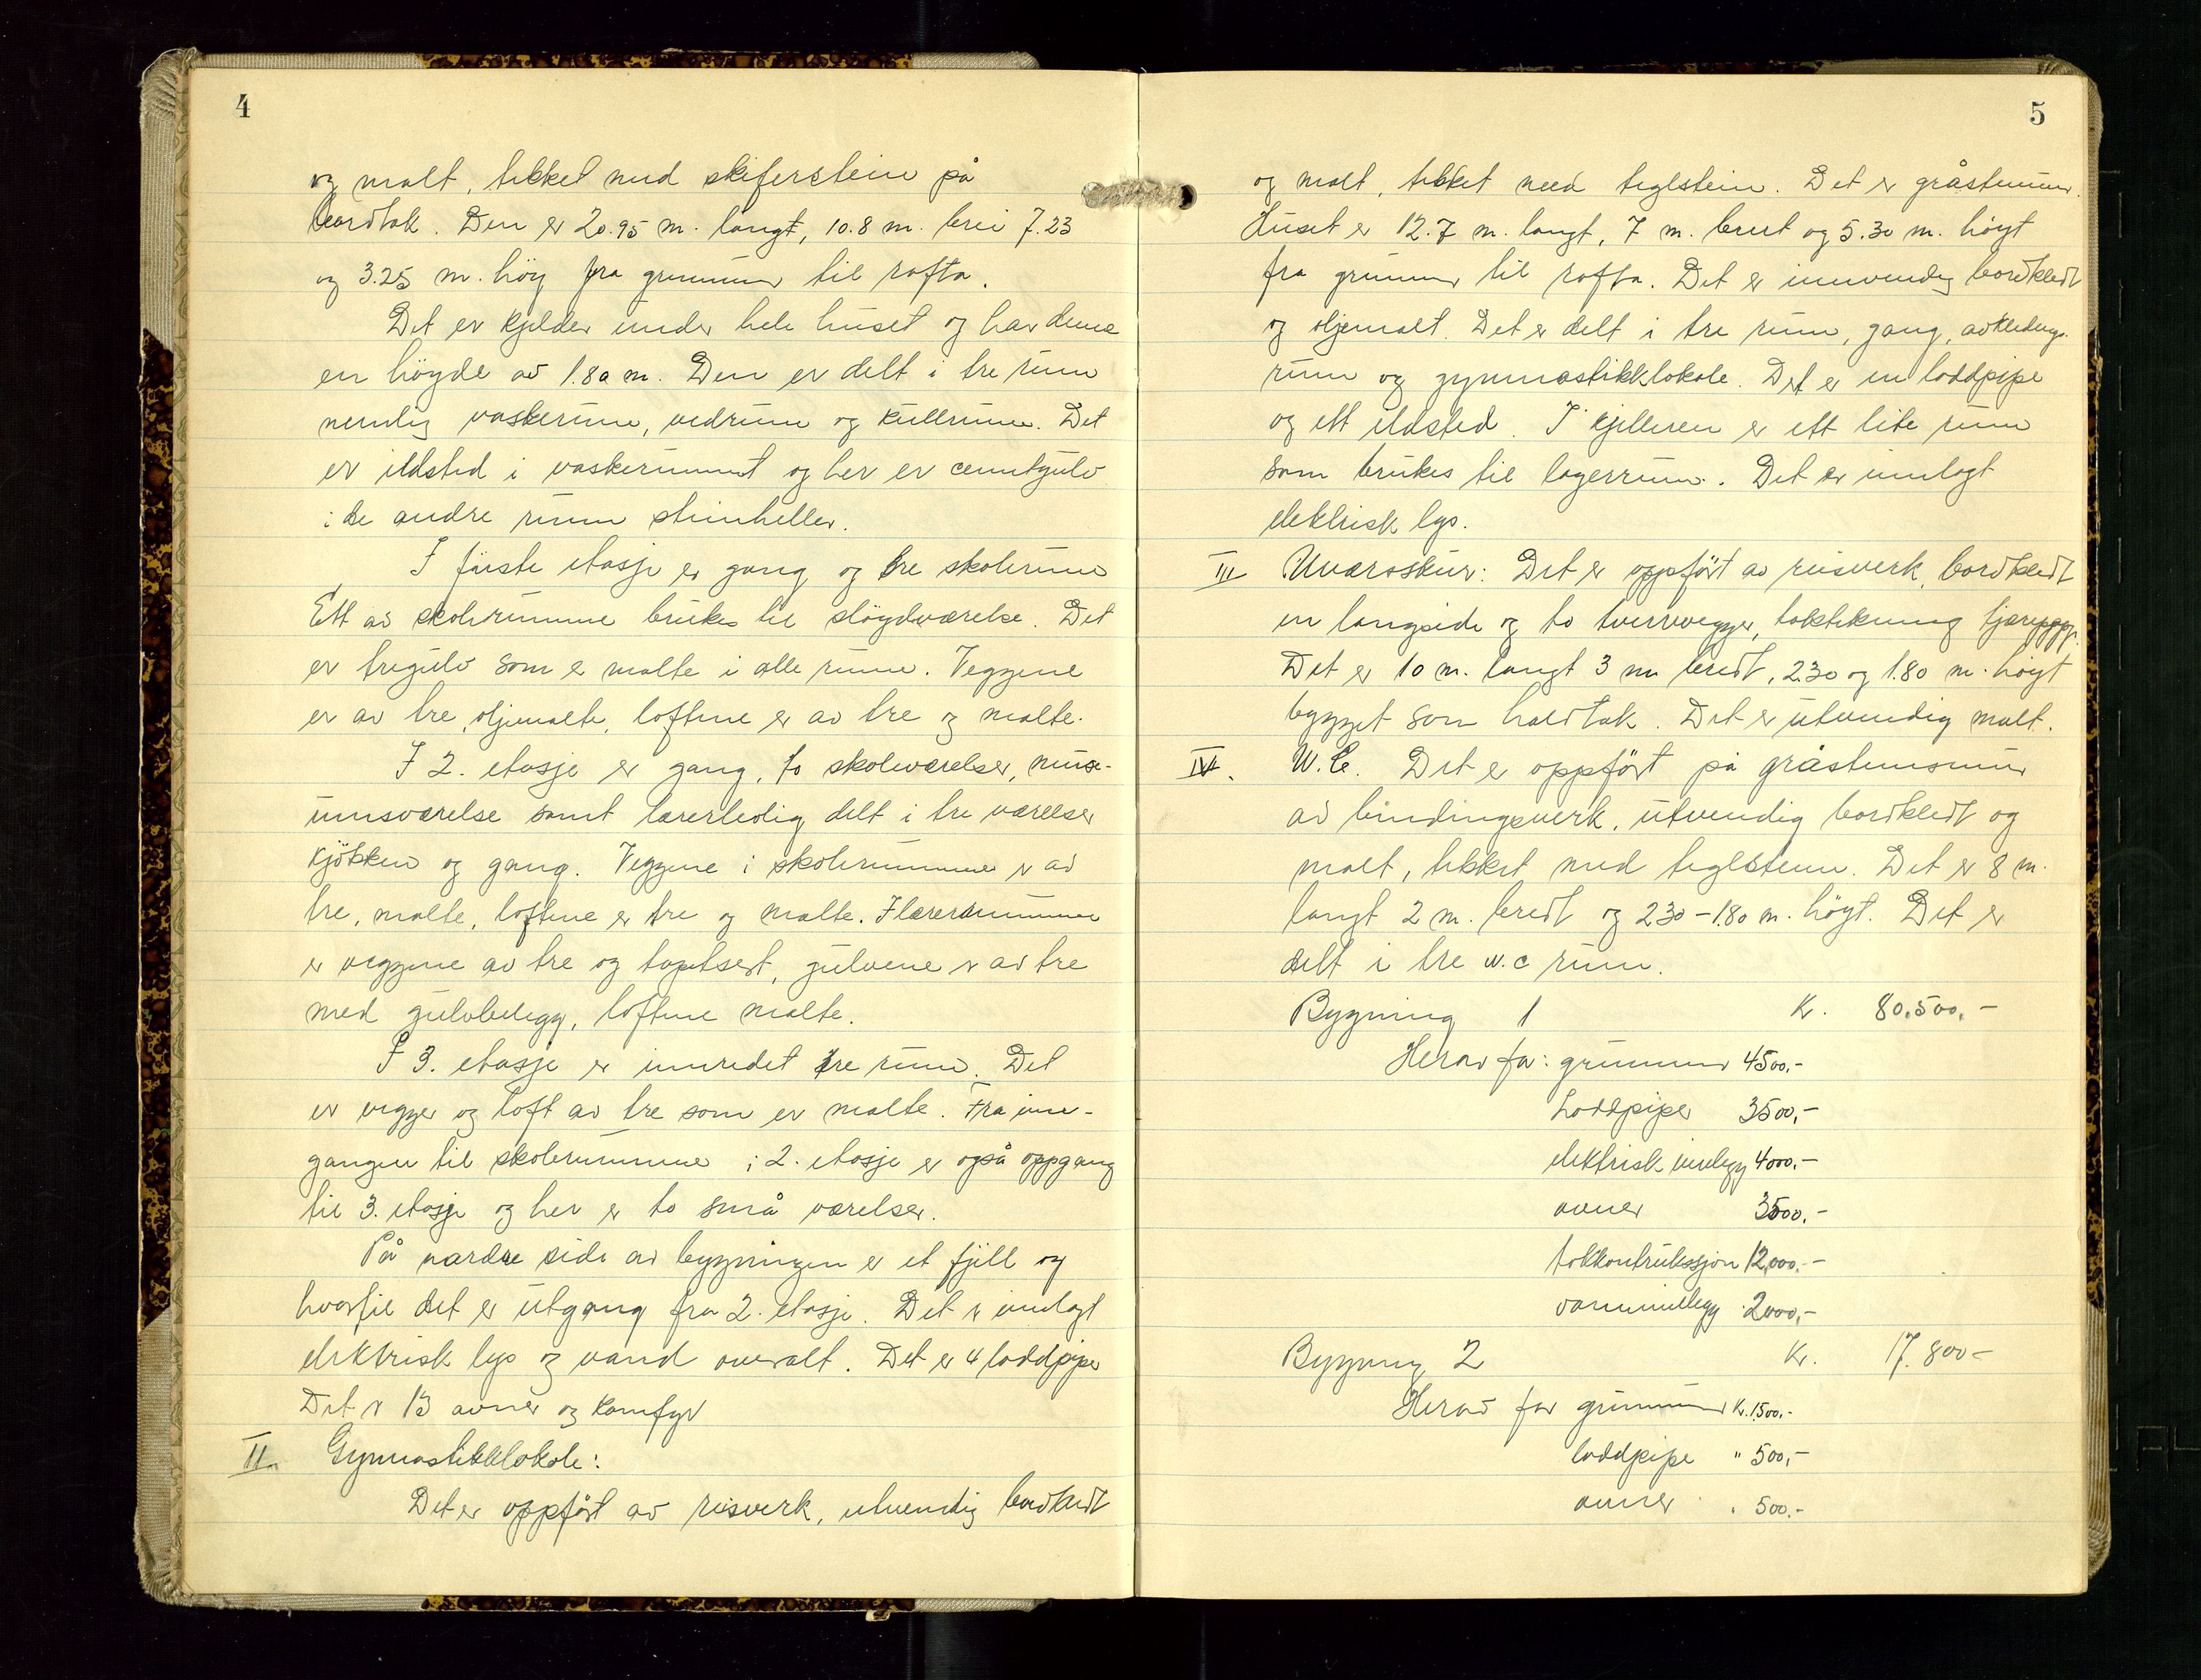 4
og malt, tekket med skiferstein på
bordtak. Den er 20.95 m. langt, 10.8 m. brei 7.23
og 3.25 m. høy fra grunnmur til rafta.
Det er kjelder under hele huset og har denne
en høyde av 1.80 m. Den er delt i tre rum
nemlig vaskerum, vedrum og kullrum. Det
er ildsted i vaskerummet og her er cementgulv
i de andre rum steinheller.
I første etasje er gang og tre skolerum
Ett av skolerummene brukes til sløydværelse. Det
er tregulv som er malte i alle rum. Veggene
er av tre, oljemalte, loftene er av tre og malte.
I 2. etasje er gang, to skoleværelser, muse-
umsværelse samt lærerbolig delt i tre værelser
kjøkken og gang. Veggene i skolerummene er av
tre, malte, loftene er tre og malte. I lærerrummene
er veggene av tre og tapetsert, gulvene er av tre
med gulvbelegg, loftene malte.
I 3. etasje er innredet tre rum. Det
er vegger og loft av tre som er malte. Fra inn-
gangen til skolerummene i 2. etasje er også oppgang
til 3. etasje og her er to små værelser.
På nordre side av bygningen er et fjell og
hvortil det er utgang fra 2. etasje. Det er innlagt
elektrisk lys og vand overalt. Det er 4 loddpiper
Det er 13 ovner og komfyr
II. Gymnastikklokale:
Det er oppført av reisverk, utvendig bordkledt
5
og malt, tekket med teglstein. Det er gråsteinmur.
Huset er 12.7 m. langt, 7 m. bredt og 5.30 m. høyt
fra grunnmur til rafta. Det er innvendig bordkledt
og oljemalt. Det er delt i tre rum, gang, avkledings-
rum og gymnastikklokale. Det er en loddpipe
og ett ildsted. I kjelleren er ett lite rum
som brukes til lagerrum. Det er innlagt
elektrisk lys.
III Uværsskur: Det er oppført av reisverk, bordkledt
en langside og to tverrvegger, taktekning tjærepapp.
Det er 10 m. langt 3 m bredt, 2.30 og 1.80 m. høyt
bygget som halvtak. Det er utvendig malt.
IV. W.C. Det er oppført på gråsteinsmur
av bindingsverk, utvendig bordkledt og
malt, tekket med teglstein. Det er 8 m.
langt 2 m. bredt og 2.30 – 1.80 m. høyt. Det er
delt i tre w.c rum.
Bygning 1 Kr. 80.500.-
Herav for: grunnmur 4500.-
Loddpiper 3500,-
elektrisk innlegg 4000.-
ovner 3500.-
takkontruksjon 12,000.-
vanninnlegg 2000,-
Bygning 2 Kr. 17.800-
Herav for grunnmur Kr. 1500.-
loddpipe " 500,-
ovner " 500.-